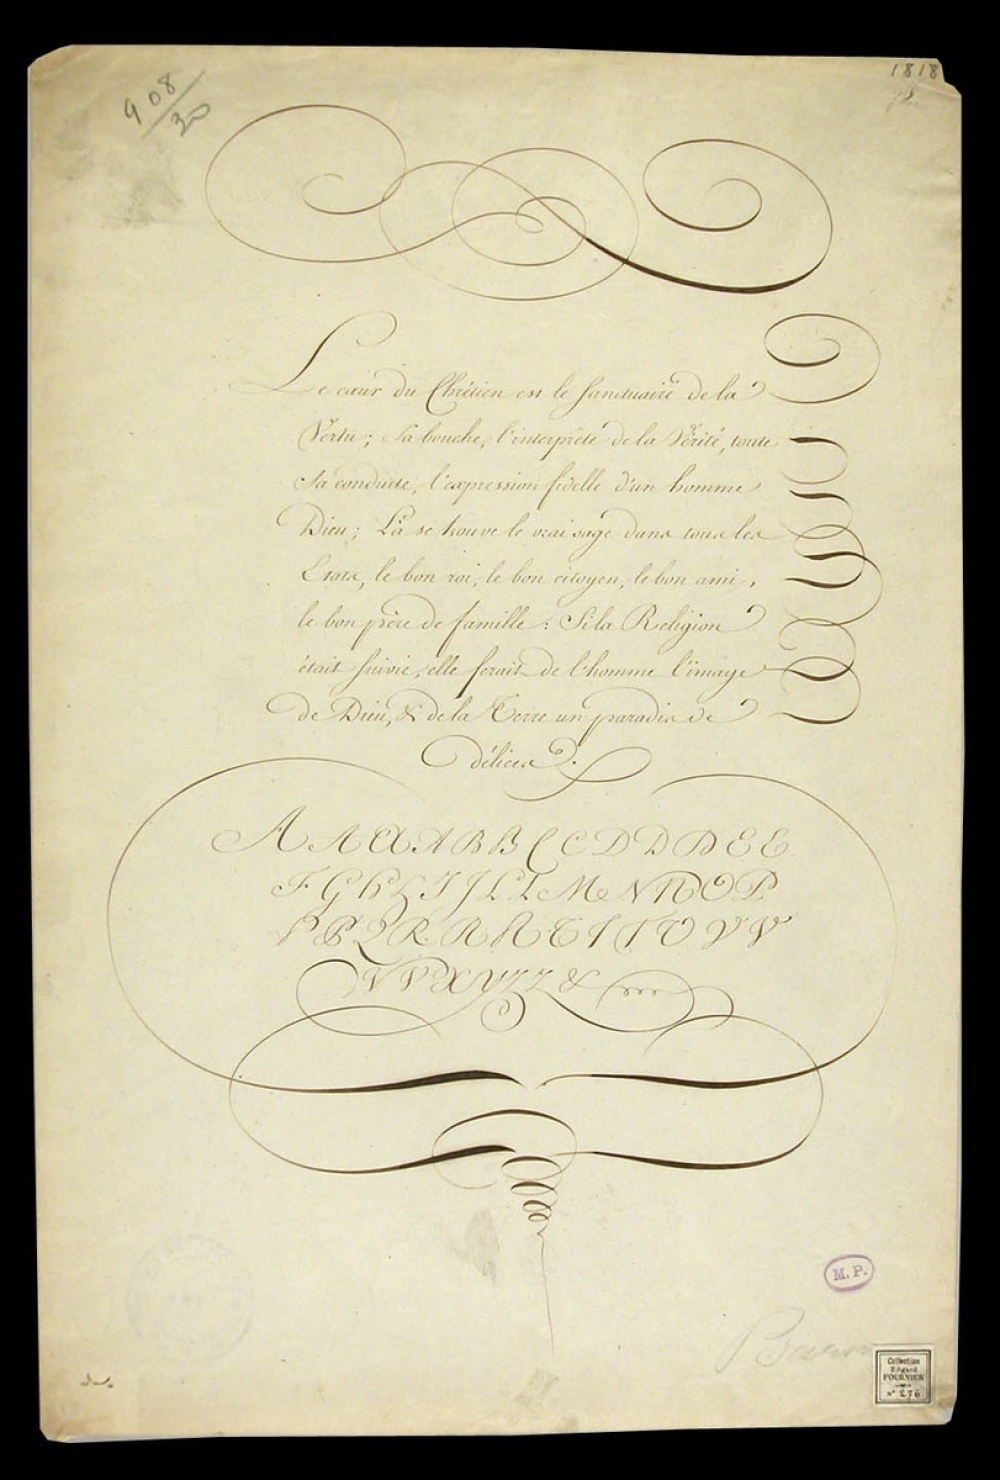 908/30
1818
Le cœur du Chrétien est le Sanctuaire de la
Vertu ; Sa bouche, l'interprète de la Vérité, toute
Sa conduite, l'expression fidelle d'un homme
Dieu ; Là se trouve le vrai sage dans tous les
Etats, le bon roi, le bon citoyen, le bon ami,
le bon père de famille : Si la Religion
était suivie, elle ferait de l'homme l'image
de Dieu, & de la Terre un paradis de
délices.
A A A A B B C C D D D E E
F G H h I J L L M N N O P
P P Q R R R T T T V V V
V V X Y Z Z &
M.P.
Collection
Edgard
FOURNIER
N° 276